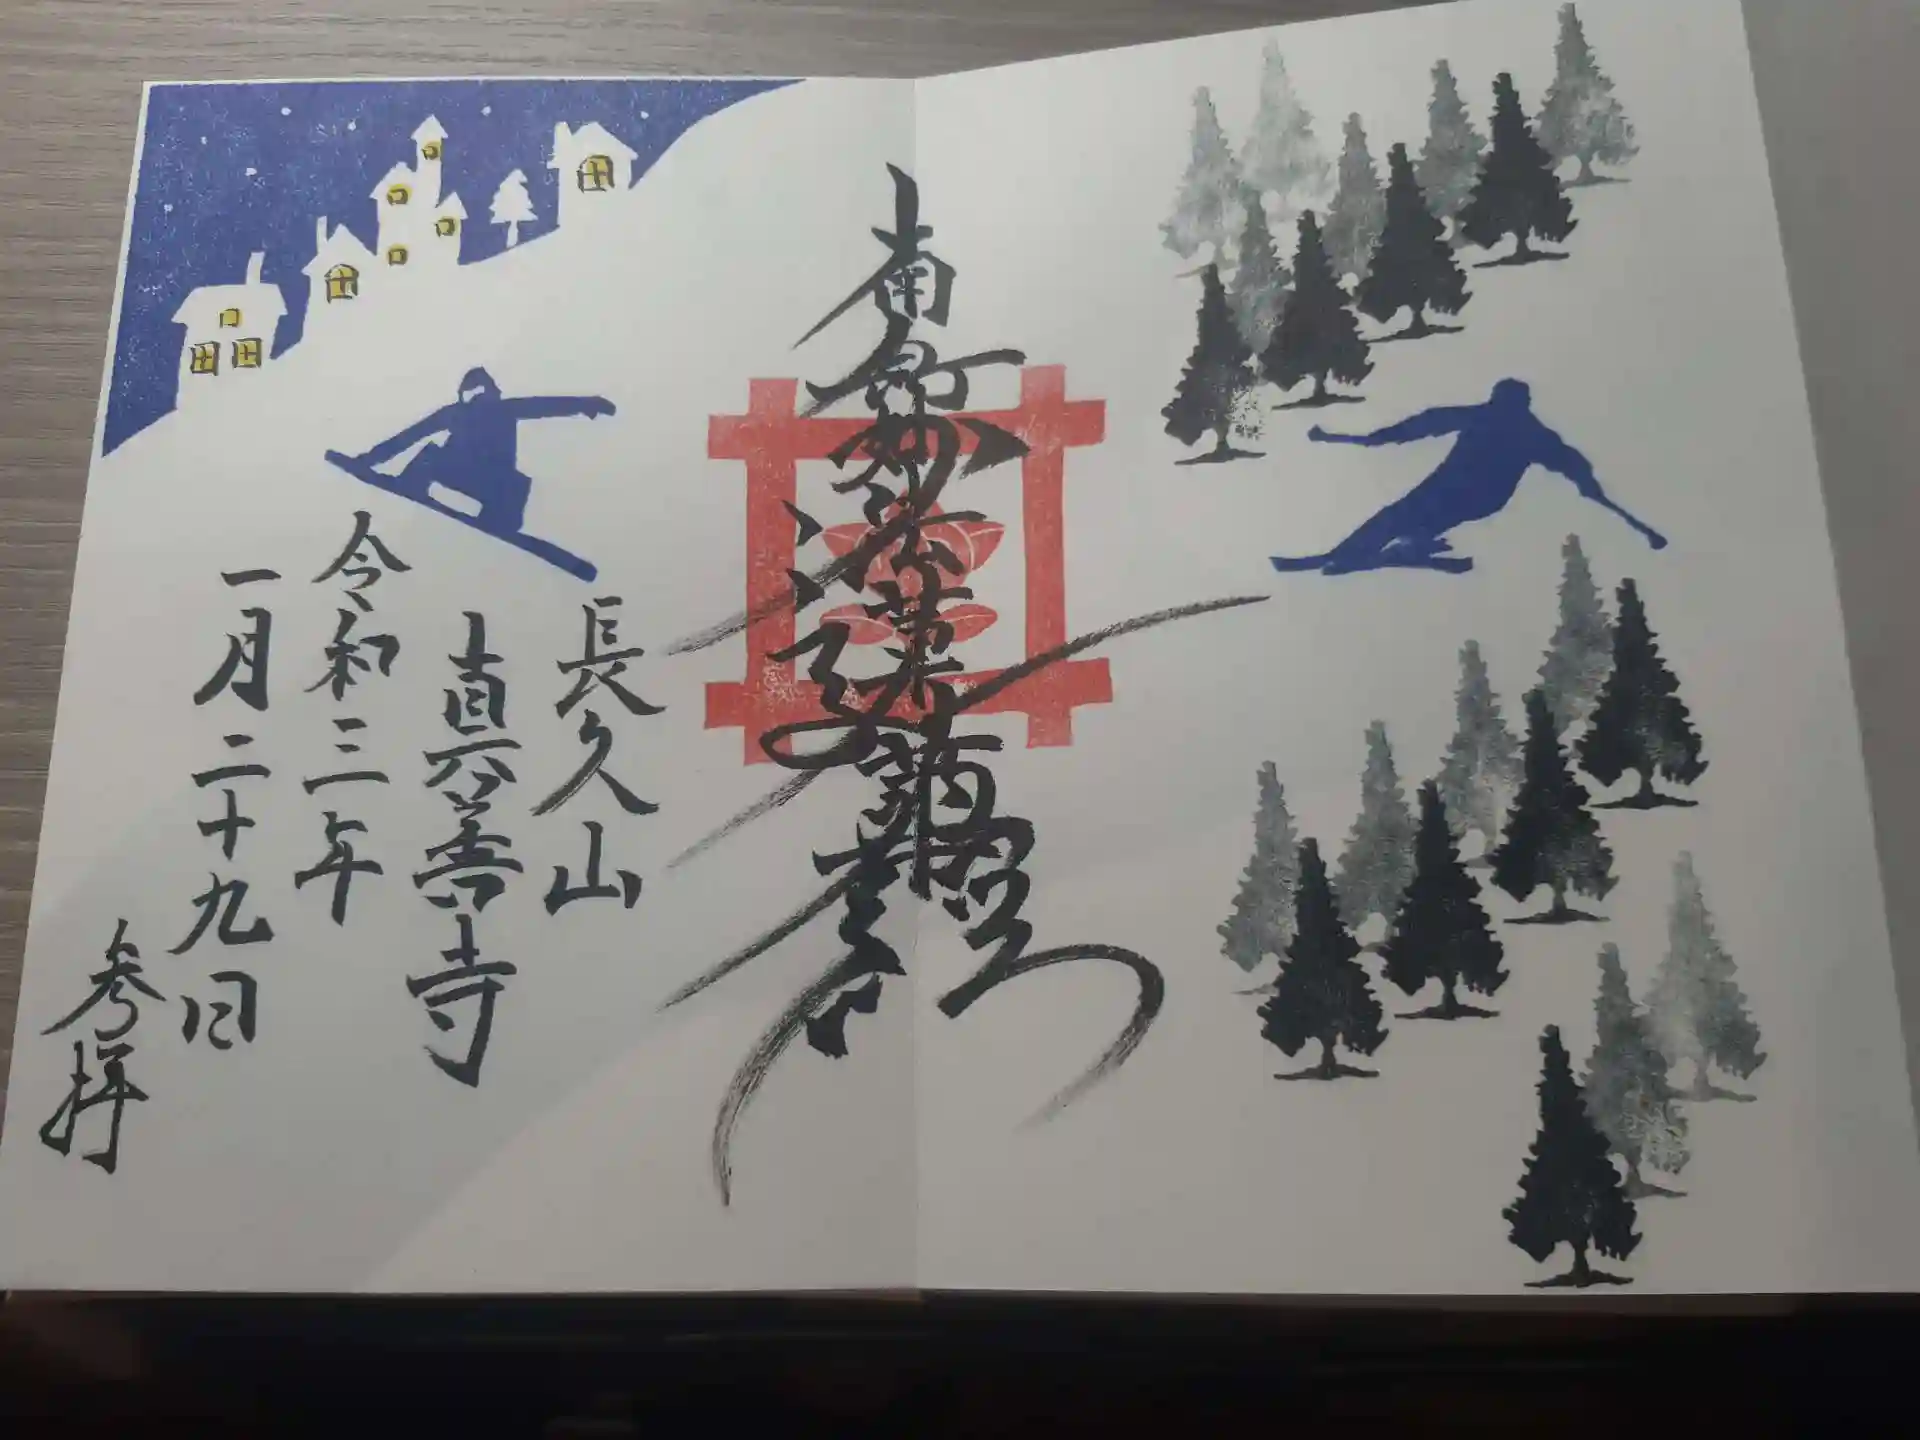 南無妙法蓮華経
長久山
眞善寺
令和三年
一月二十九日
参拝